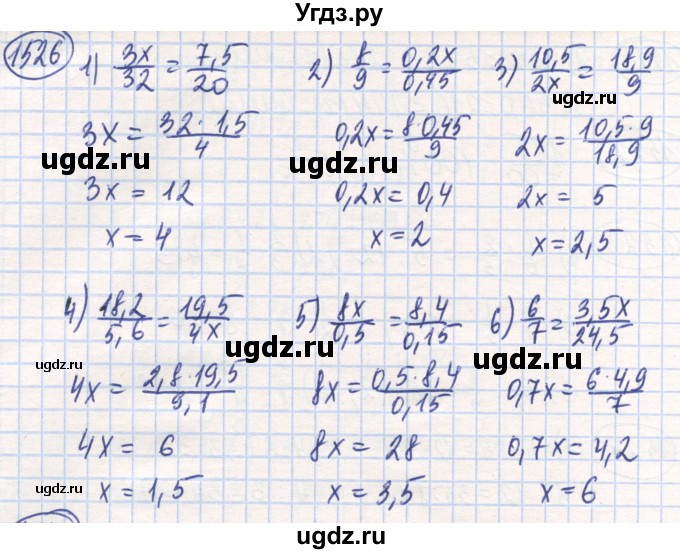 Угдз.ру
1526
1) 3x/32 = 7,5/20
3x = 32·1,5/4
3x = 12
x = 4
2) 8/9 = 0,2x/0,45
0,2x = 8·0,45/9
0,2x = 0,4
x = 2
3) 10,5/2x = 18,9/9
2x = 10,5·9/18,9
2x = 5
x = 2,5
4) 18,2/5,6 = 19,5/4x
4x = 2,8·19,5/9,1
4x = 6
x = 1,5
5) 8x/0,5 = 8,4/0,15
8x = 0,5·8,4/0,15
8x = 28
x = 3,5
6) 6/7 = 3,5x/24,5
0,7x = 6·4,9/7
0,7x = 4,2
x = 6
ugdz.ru
ugdz.ru
ugdz.ru
ugdz.ru
ugdz.ru
ugdz.ru
ugdz.ru
ugdz.ru
ugdz.ru
ugdz.ru
ugdz.ru